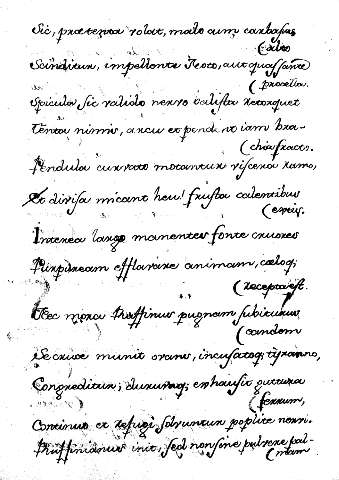 Sic, prætenta volat, malo cum carbasus
(alto
Scinditur, impellente Noto, aut quassante
(procella.
Spicula sic valido nervo balista retorquet
Tenta nimis, arcu et pendent iam bra-
(chia fracto.
Pendula curvato motantur viscera ramo,
Et divisa micant heu! frusta calentibus
(extis.
Interea largo manentes fonte cruores
Purpuream efflavere animam, cæloq;
(recepta est.
Nec mora Ruffinus pugnam subiturus
(eandem
Se cruce munit orans, incusatq; tyranno,
Congreditur; durumq; exhausit guttura
(ferrum,
Continuo et refugi solvuntur poplite nervi.
Ruffinianus init, sed non sine pulvere pal-
(mam